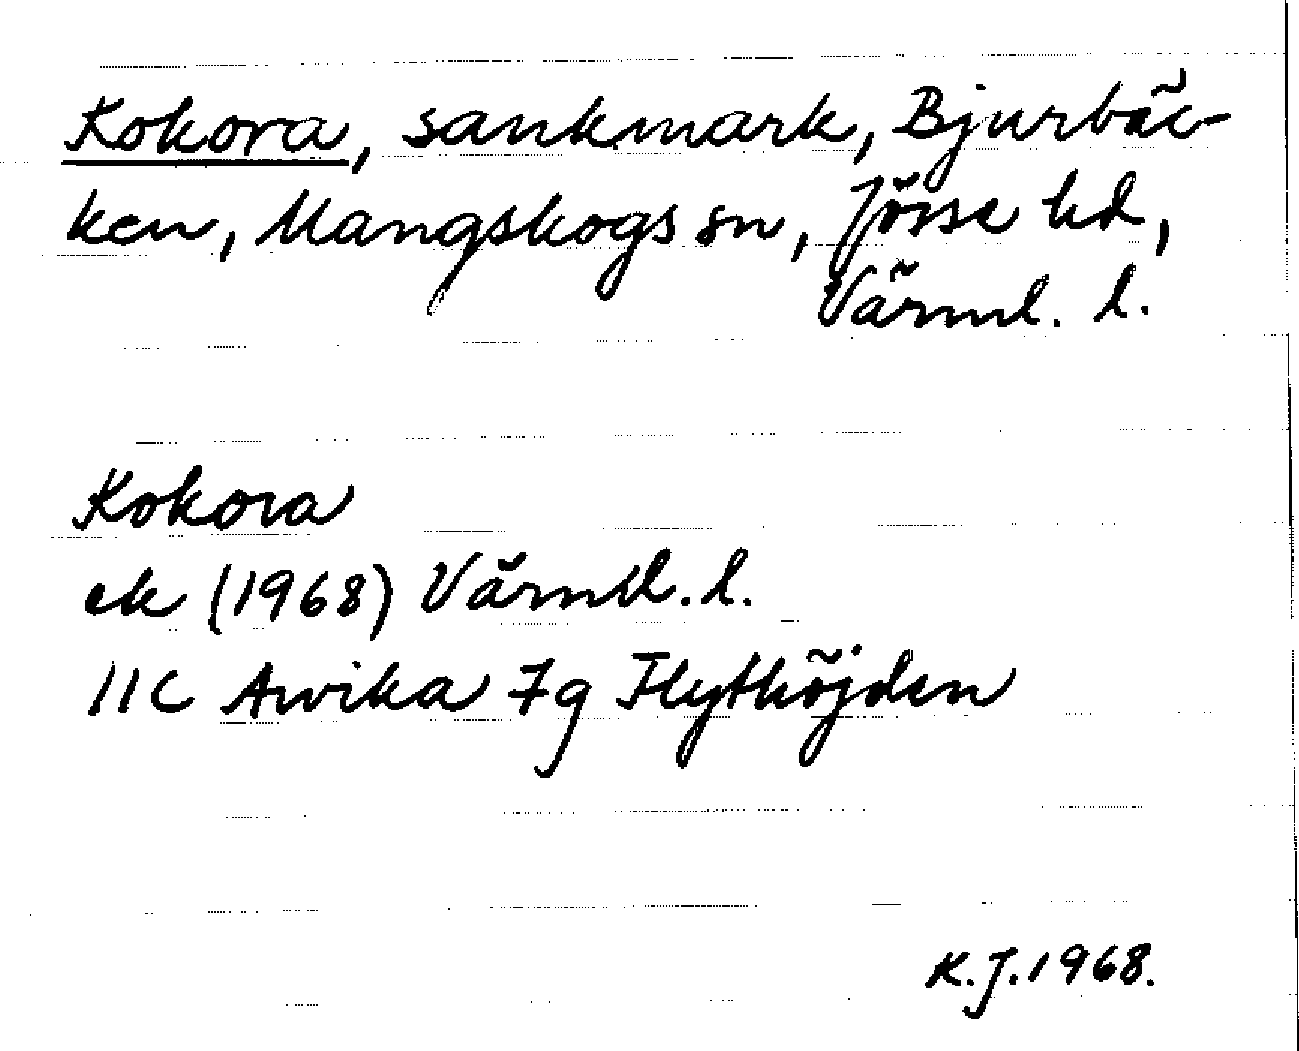 Kokora, sankmark, Bjurbäc-
ken, Mangskogs sn, Jösse hd,
Värml. l.
Kokora
ek (1968) Värml. l.
11C Arvika 7g Flythöjden
K.J. 1968.